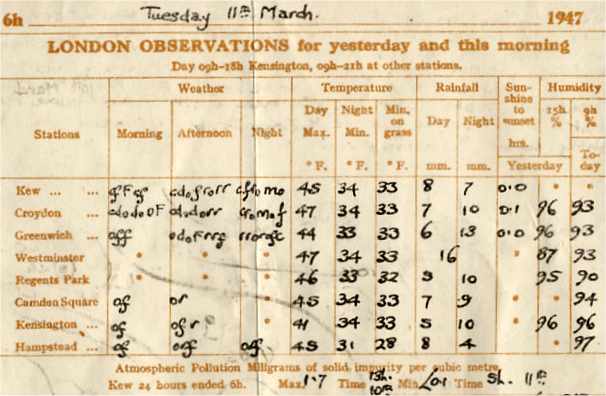 6h Tuesday 11th March. 1947
LONDON OBSERVATIONS for yesterday and this morning
Day 09h-18h Kensington, 09h-21h at other stations.
Weather Temperature Rainfall Sun- Humidity
Stations Morning Afternoon Night Day Night Min. Day Night shine 15h 9h
Max. Min. on to % %
grass sunset
hrs.
° F. ° F. ° F. mm. mm. Yesterday To-
day
Kew ... ... 45 34 33 8 7 0.0 " "
Croydon ... 47 34 33 7 10 0.1 96 93
Greenwich ... off 44 33 33 6 13 0.0 96 93
Westminster " " " 47 34 33 16 " 87 93
Regents Park " " " 46 33 32 9 10 " 95 90
Camden Square of or " 45 34 33 7 9 " " 94
Kensington ... of ofr " 41 34 33 5 10 " 96 96
Hampstead ... of off off 45 31 28 8 4 " " 97
Atmospheric Pollution Milligrams of solid impurity per cubic metre
Kew 24 hours ended 6h. Max. 1.7 Time 10th Min. Time 5h. 11th